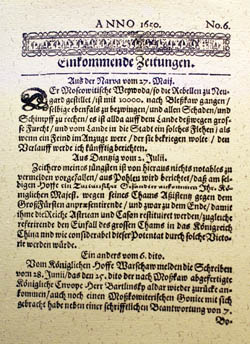 ANNO 1650. No. 6.
Einkommende Zeitungen.
Auß der Narva vom 27. Maij.
DEr Moscowitische Weywoda/so die Rebellen zu Neu-
gard gestillet/ist mit 10000. nach Pleßkaw gangen/
selbige ebenfals zu bezwingen/und allen Schaden/und
Schimpff zu rechen/ es ist alda auff dem Lande deßwegen gros-
se Furcht/ und vom Lande in die Stadt ein solches Flehen/ als
wenn ein Feind im Anzuge were / der sie bekriegen wolte / den
Verlauff werde ich künfftig berichten.
Aus Dantzig vom 2. Julii.
Zeithero meines jüngsten ist von heraus nichts notables zu
vermelden vorgefallen/ aus Pohlen wird berichtet/daß am sel-
bigen Hoffe ein Tartarischer Gesandter ankommen
Königlichen Majest. wegen seines Chams Assistentz gegen dem
Großfürsten zu præsentirend/ und zwar zu dem Ende/ damit
ihme die Reiche Astracan und Casan restituiret werden/zugleich
referirende den Einfall des grossen Chams in das Königreich
China und wie considerabel dieser Potentat durch solche Victo-
rie werden würde.
Ein anders vom 6. dito.
Vom Königlichen Hoffe Warschaw melden die Schreiben
vom 28. Junii/das den 25. dito der nach Moskaw abgefertigte
Königliche Envoye Herr Bartlinsky aldar wieder zurücke an-
kommen/auch noch einen Moskowiterschen Goniec mit sich
gebracht habe neben einer schrifftlichen Beantwortung von 7.
Bo-